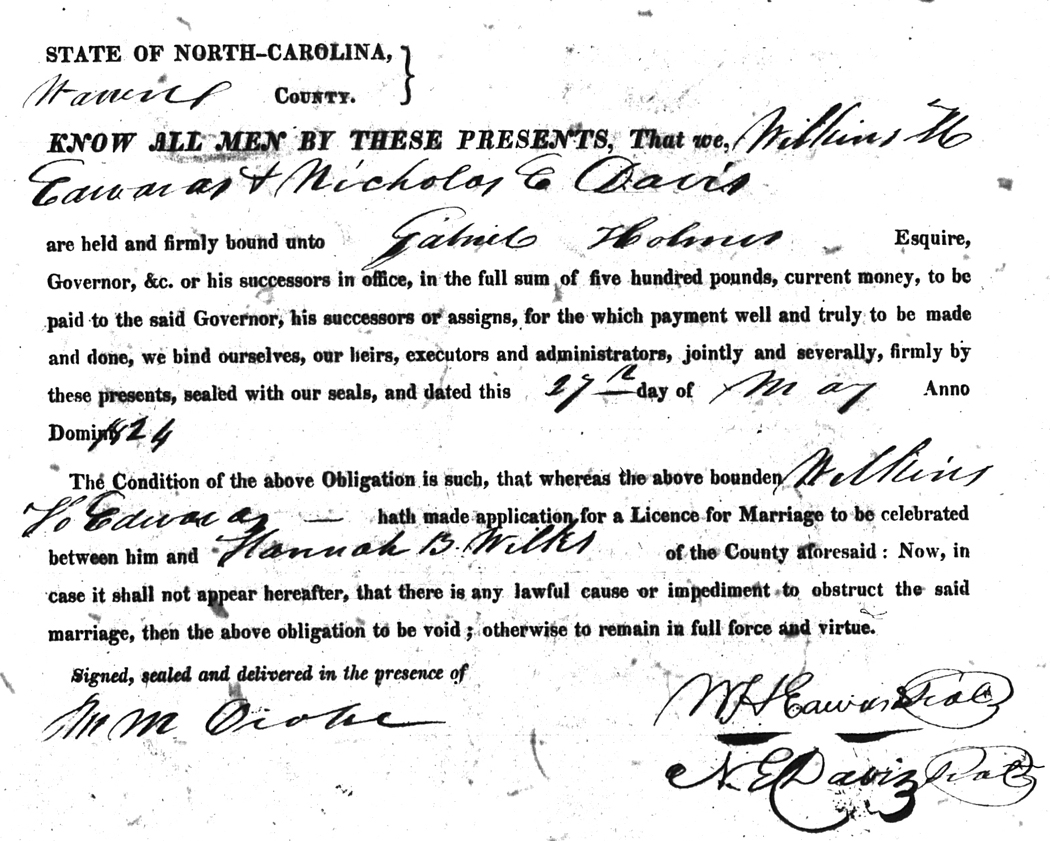 STATE OF NORTH-CAROLINA,
Warren COUNTY.
KNOW ALL MEN BY THESE PRESENTS, That we, Wilkins H
Edwards & Nicholas E Davis
are held and firmly bound unto Gabriel Holmes Esquire,
Governor, &c. or his successors in office, in the full sum of five hundred pounds, current money, to be
paid to the said Governor, his successors or assigns, for the which payment well and truly to be made
and done, we bind ourselves, our heirs, executors and administrators, jointly and severally, firmly by
these presents, sealed with our seals, and dated this 27th day of May Anno
Domini 1824
The Condition of the above Obligation is such, that whereas the above bounden Wilkins
H Edwards — hath made application for a Licence for Marriage to be celebrated
between him and Hannah B. Wilks of the County aforesaid : Now, in
case it shall not appear hereafter, that there is any lawful cause or impediment to obstruct the said
marriage, then the above obligation to be void ; otherwise to remain in full force and virtue.
Signed, sealed and delivered in the presence of
W H Edwards Seal
M. Drake
N. E Davis Seal